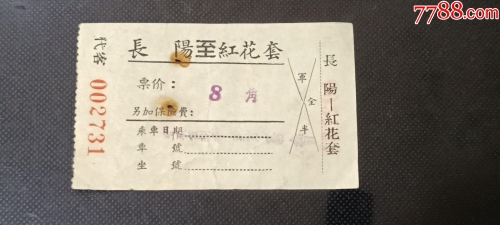 7788.com
代客
002731
長 陽至紅花套
票价：
8 角
另加保險費：
乘車日期
車 號
坐 號
軍 全 半
長 陽—紅花套